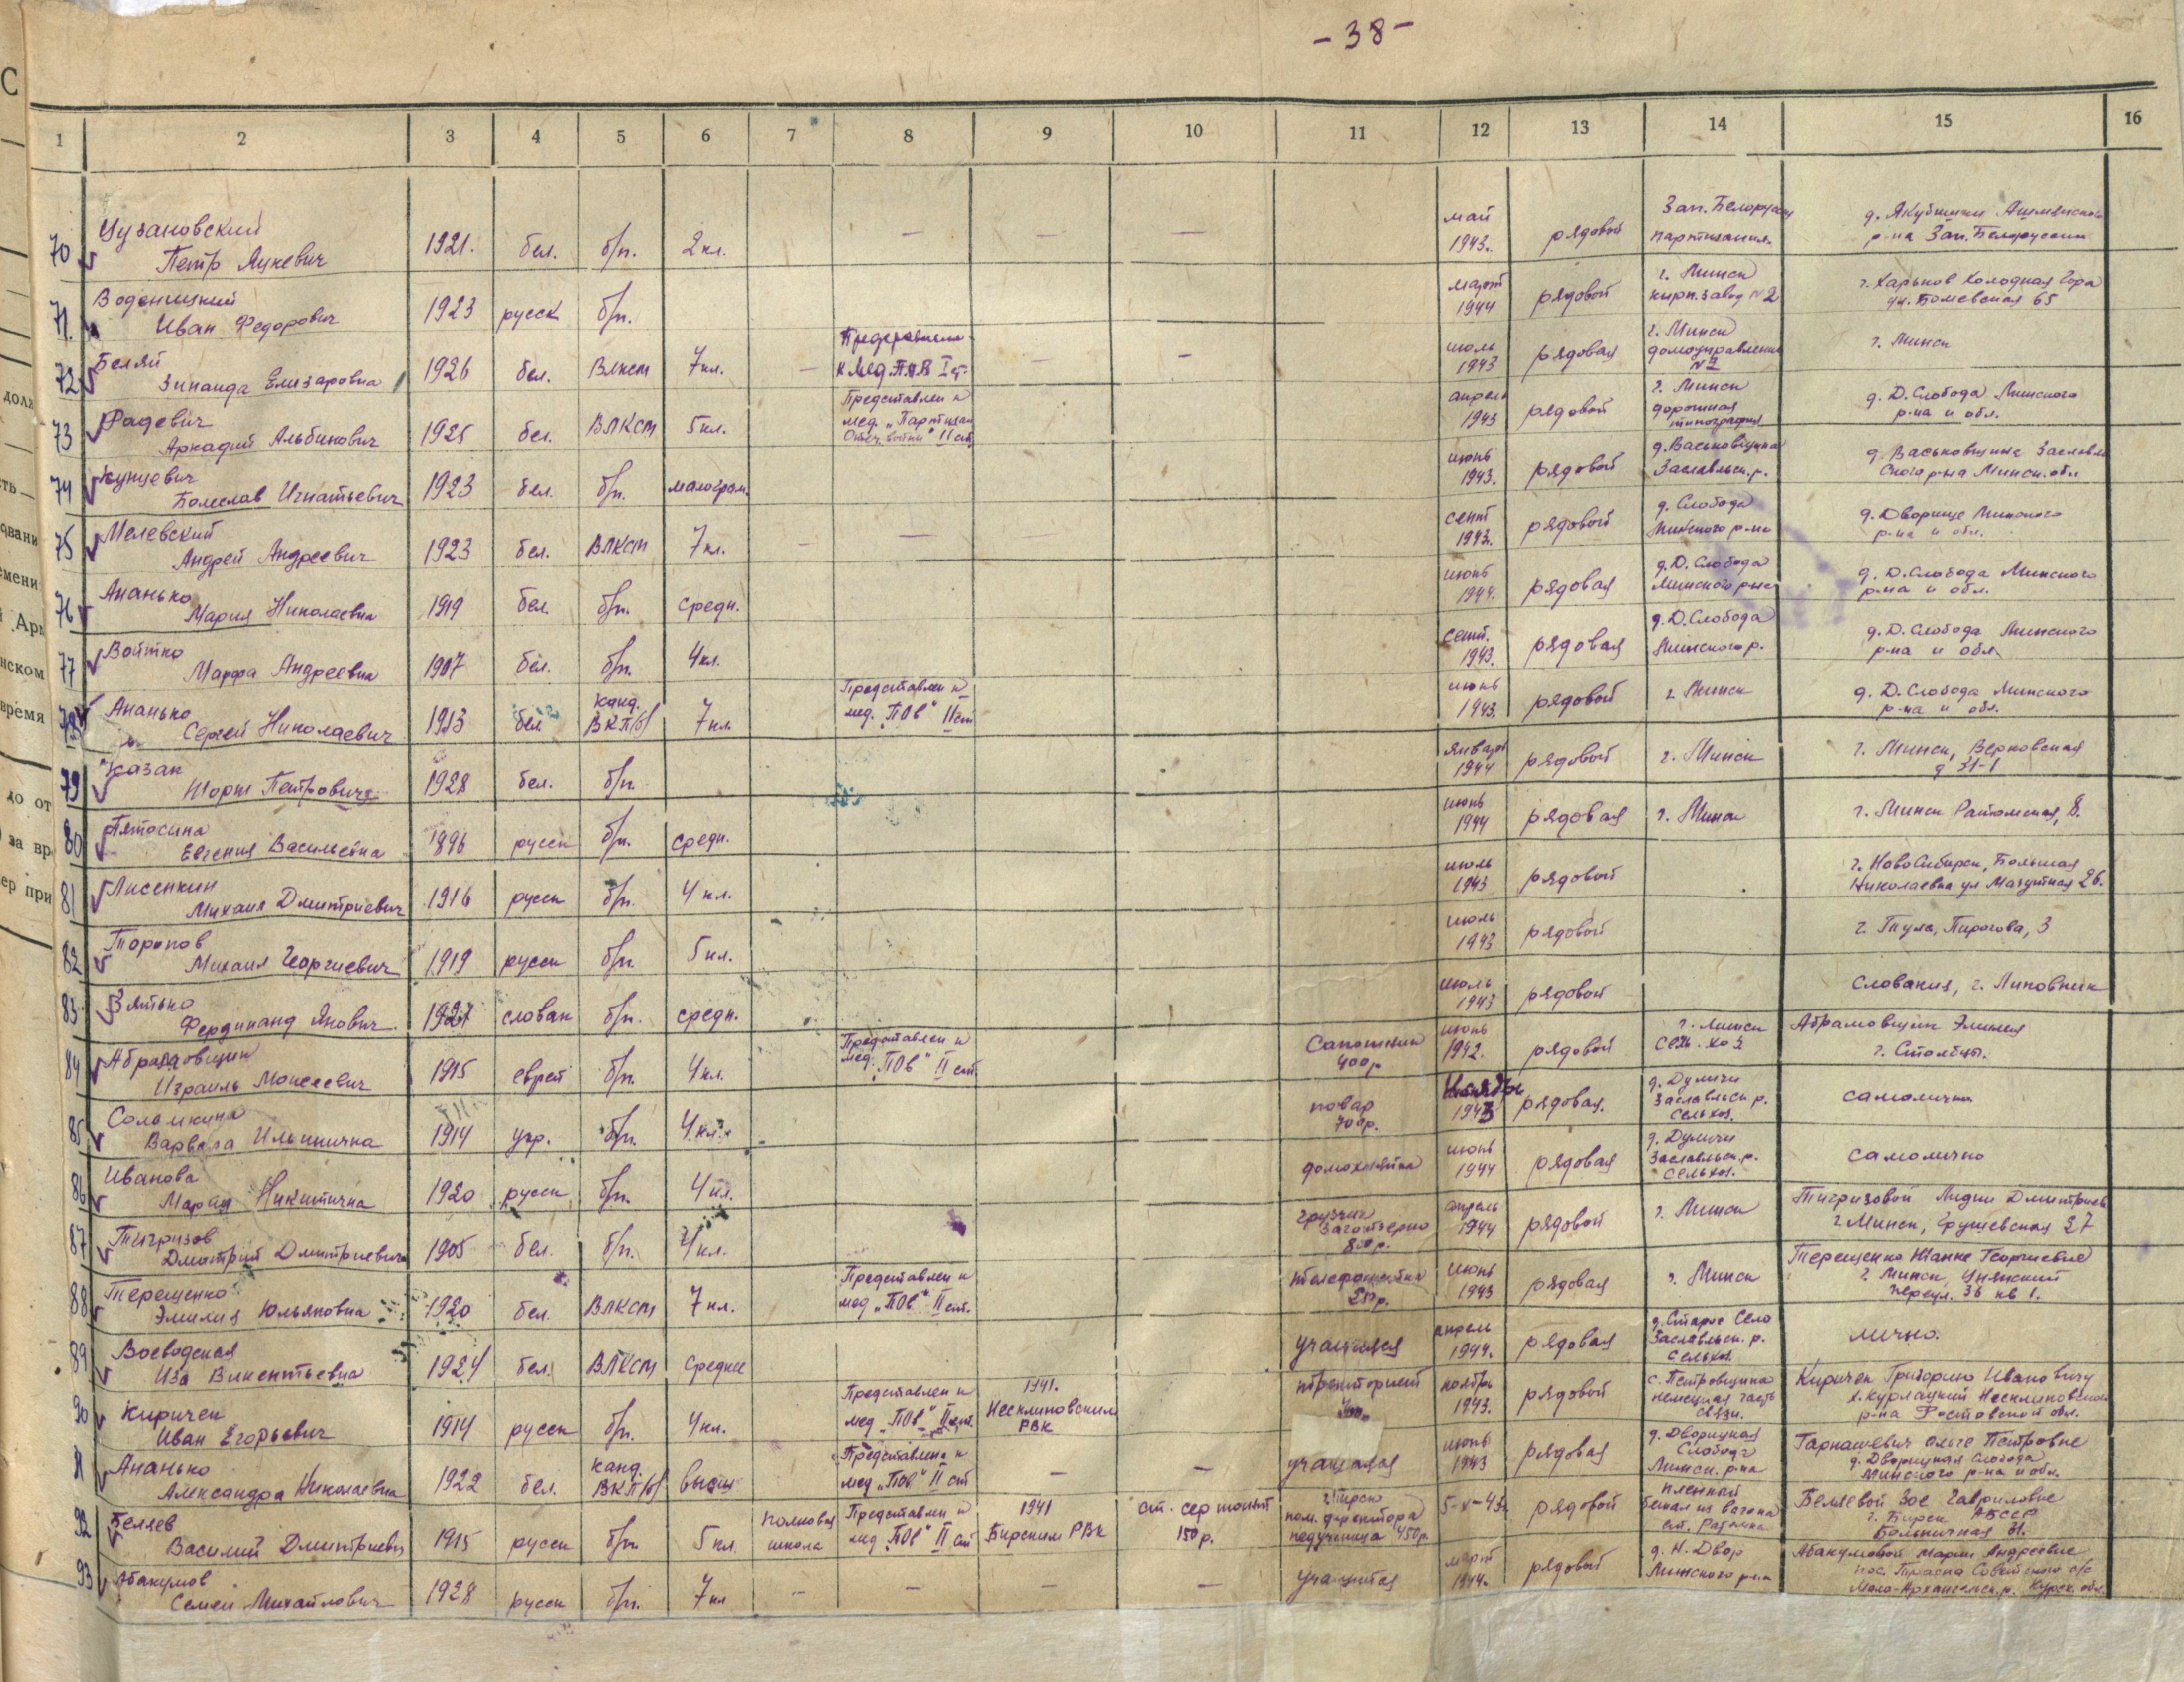 - 38 -
1 2 3 4 5 6 7 8 9 10 11 12 13 14 15 16
70 Цузановский Петр Яцкевич 1921. бел. б/п. 2 кл. — — — май 1943. рядовой Зап. Белорусси партизания. д. Якубишки Ашмянского р-на Зап. Белоруссии
71. Воденицкий Иван Федорович 1923 русск б/п. март 1944 рядовой г. Минск кирп. завод № 2 г. Харьков Холодная Гора ул. 65
72 Беляй Зинаида Елизаровна 1926 бел. ВЛКСМ 7 кл. — Представлена к мед. П.О.В I ст. — — июль 1943 рядовая г. Минск домоуправление г. Минск
73 Фадевич Аркадий Альбинович 1925 бел. ВЛКСМ 5 кл. Представлен к мед. „Партизан Отеч. войны" II ст. апрель 1943 рядовой г. Минск дорожная типография д. Д. Слобода Минского р-на и обл.
74 Кунцевич Болеслав Игнатьевич 1923 бел. б/п. малограм. июнь 1943. рядовой д. Васьковщина Заславльск. р. д. Васьковщина Заславль ского р-на Минск. обл
75 Мелевский Андрей Андреевич 1923 бел. ВЛКСМ 7 кл. — — сент 1943. рядовой д. Слобода Минского р-на д. Дворище Минского р-на и обл.
76 Ананько Мария Николаевна 1919 бел. б/п. средн. июнь 1944. рядовая д. Д. Слобода Минского р-на д. Д. Слобода Минского р-на и обл.
77 Войтко Марфа Андреевна 1907 бел. б/п. 4 кл. сент. 1943. рядовая д. Д. Слобода Минского р. д. Д. Слобода Минского р-на и обл.
78 Ананько Сергей Николаевич 1913 бел. канд. ВКП/б/ 7 кл. Представлен к мед. „ПОВ" II ст июнь 1943. рядовой г. Минск д. Д. Слобода Минского р-на и обл.
79 Казак Жорж Петрович 1928 бел. б/п. январь 1944 рядовой г. Минск г. Минск, Верковская д 31-1
80 Пятосина Евгения Васильевна 1896 русск б/п. средн. июнь 1944 рядовая г. Минск г. Минск 8.
81 Лисенкин Михаил Дмитриевич 1916 русск б/п. 4 кл. июль 1943 рядовой г. НовоСибирск, Большая Николаевка ул Мазутная 26.
82 Торопов Михаил Георгиевич 1919 русск б/п. 5 кл. июль 1943 рядовой г. Тула, Пирогова, 3
83 Зятько Фердинанд Янович 1927 словак б/п. средн. июль 1943 рядовой Словакия, г. Липовник
84 Абрамовщик Израиль Моисеевич 1915 еврей б/п. 4 кл. Представлен к мед. „ПОВ" II ст. Сапожник 400 р. июнь 1942. рядовой г. Минск сель. хоз Абрамовщик Эмилия г. Столбцы.
85 Солышкина Варвара Ильинична 1914 укр. б/п. 4 кл. повар 700 р. Ноябрь 1943 рядовая. д. Дуличи Заславльск. р. сельхоз. самолично
86 Иванова Мария Никитична 1920 русск б/п. 4 кл. домохозяйка июнь 1944 рядовая д. Дуличи Заславльск. р. сельхоз. самолично
87 Тигризов Дмитрий Дмитриевич 1905 бел. б/п. 4 кл. грузчик Заготзерно 800 р. апрель 1944 рядовой г. Минск Тигризовой Лидии Дмитриев г. Минск, Грушевская 27
88 Терещенко Эмилия Юльяновна 1920 бел. ВЛКСМ 7 кл. Представлен к мед „ПОВ" II ст. телефонистка 250 р. июнь 1943 рядовая г. Минск Терещенко Жанне Георгиевне г. Минск, переул. 36 кв 1.
89 Воеводская Иза Викентьевна 1924 бел. ВЛКСМ Среднее учащаяся апрель 1944. рядовая д. Старое Село Заславльск. р. сельхоз. лично.
90 Киричек Иван Егорьевич 1914 русск б/п. 4 кл. Представлен к мед „ПОВ" II ст. 1941. Несклиновским РВК ноябрь 1943. рядовой с. Петровщина немецкая часть связи. Киричек Григорию Ивановичу х. Курлацкий Несклиновского р-на Ростовской обл.
91 Ананько Александра Николаевна 1922 бел. канд. ВКП/б/ высш Представлена к мед „ПОВ" II ст — — учащаяся июнь 1943 рядовая д. Дворицкая Слобода Минск. р-на Гарнашевич Ольге Петровне д. Дворицкая Слобода Минского р-на и обл.
92 Беляев Василий Дмитриевич 1915 русск б/п. 5 кл. полковая школа Представлен к мед „ПОВ" II ст 1941 Бирским РВК ст. сержант 150 р. г. Бирск пом. директора педучилища 450 р. 5-X-43г рядовой пленный бежал из вагона Беляевой Зое Гавриловне г. Бирск АБССР Больничная 81.
93 Абакумов Семен Михайлович 1928 русск б/п. 7 кл — — — — учащийся март 1944. рядовой д. Н. Двор Минского р-на Абакумовой Марии Андреевне пос. Советского с/с Мало-Архангельск. р. Курск. обл.